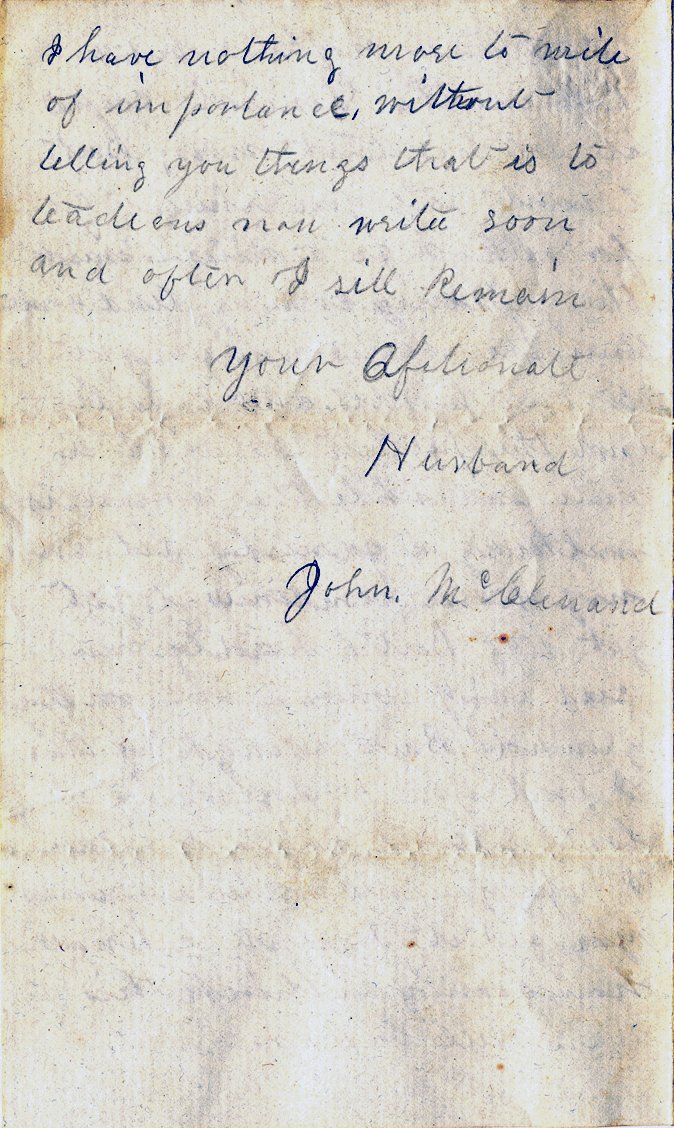 I have nothing more to write
of importance, without
telling you things that is to
teadeous now write soon
and often I sill Remain
Your Afctionate
Husband
John. McClenand